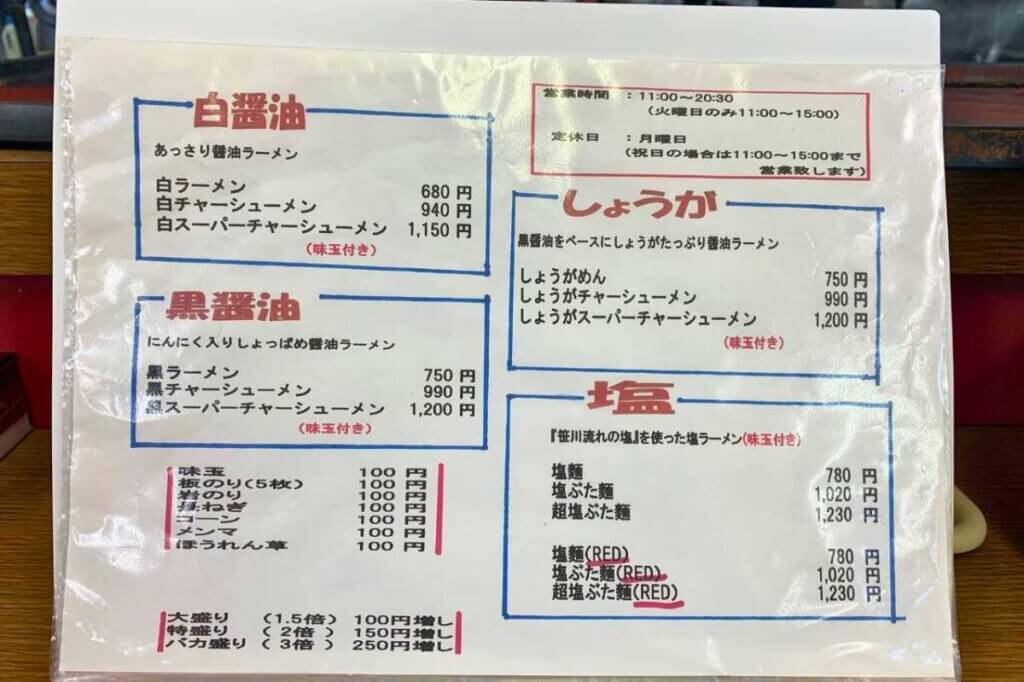 白醤油
あっさり醤油ラーメン
白ラーメン 680 円
白チャーシューメン 940 円
白スーパーチャーシューメン 1,150 円
(味玉付き)
黒醤油
にんにく入りしょっぱめ醤油ラーメン
黒ラーメン 750 円
黒チャーシューメン 990 円
黒スーパーチャーシューメン 1,200 円
(味玉付き)
味玉 100 円
板のり(5枚) 100 円
岩のり 100 円
長ねぎ 100 円
コーン 100 円
メンマ 100 円
ほうれん草 100 円
大盛り (1.5倍) 100円増し
特盛り (2倍) 150円増し
バカ盛り (3倍) 250円増し
営業時間 :11:00〜20:30
(火曜日のみ11:00〜15:00)
定休日 :月曜日
(祝日の場合は11:00〜15:00まで
営業致します)
しょうが
黒醤油をベースにしょうがたっぷり醤油ラーメン
しょうがめん 750 円
しょうがチャーシューメン 990 円
しょうがスーパーチャーシューメン 1,200 円
(味玉付き)
塩
『笹川流れの塩』を使った塩ラーメン(味玉付き)
塩麺 780 円
塩ぶた麺 1,020 円
超塩ぶた麺 1,230 円
塩麺(RED) 780 円
塩ぶた麺(RED) 1,020 円
超塩ぶた麺(RED) 1,230 円